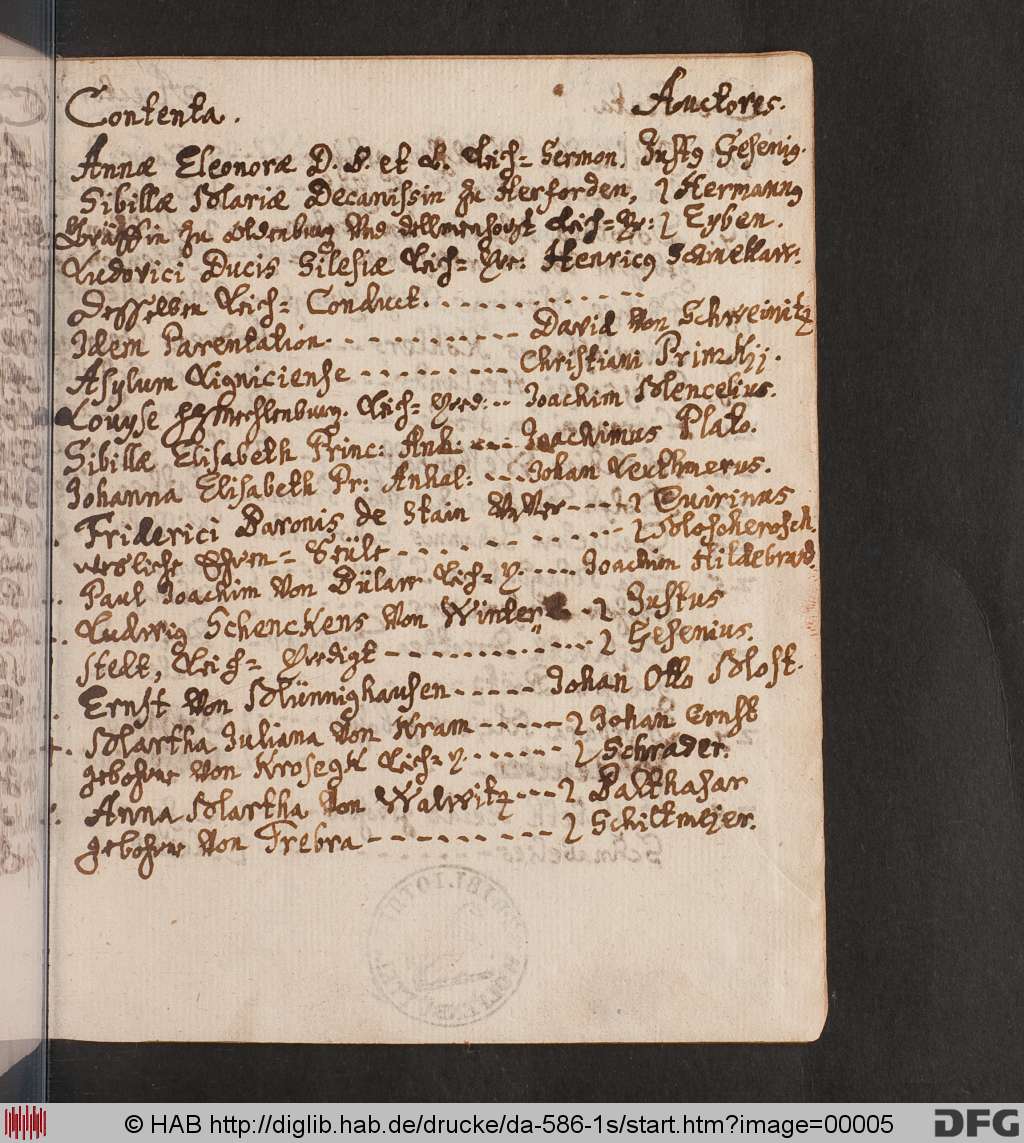 Contenta. Auctores.
Annæ Eleonoræ D. B. et L. Leich= Sermon. Justq Gesenig.
Sibillæ Mariæ Decanissin zu Herforden, Hermannq
Gräffin zu Oldenburg und dellmenhorst Leich=Pr: Eyben.
Ludovici Ducis Silesiæ Leich= Pr: Henricq Schmettaw.
Desselben Leich= Conduct. - - - - - - - - - -
Idem Parentation. - - - - - - - - - David von Schweinitz
Asylum Ligniciense - - - - - - - - - Christiani Primkij.
Louyse Mechlenburg. Leich= pred: - - Joachim Mencelius.
Sibillæ Elisabeth Princ: Anh. - - - Joachimus Plato.
Johanna Elisabeth Pr: Anhal: - - - Johan
Friderici Baronis de Stain - - - - Quirinus
Ehren= Seüle - - - - - - - - - - Moscherosch.
Paul Joachim von Bülaw Leich= P. - - - - Joachim Hildebrand.
Ludwig Schenckens von Winter - - Justus
stedt, Leich= Predigt - - - - - - - - - - - - Gesenius.
Ernst von Münnighausen - - - - - Johan Otto Most.
Martha Juliana von Kram - - - - - Johan Ernst
gebohrne von Krosegk Leich= P. - - - - - - Schrader.
Anna Martha von Walwitz - - - Balthasar
gebohrne von Trebra - - - - - - - - - - Schiltmejer.
© HAB http://diglib.hab.de/drucke/da-586-1s/start.htm?image=00005 DFG